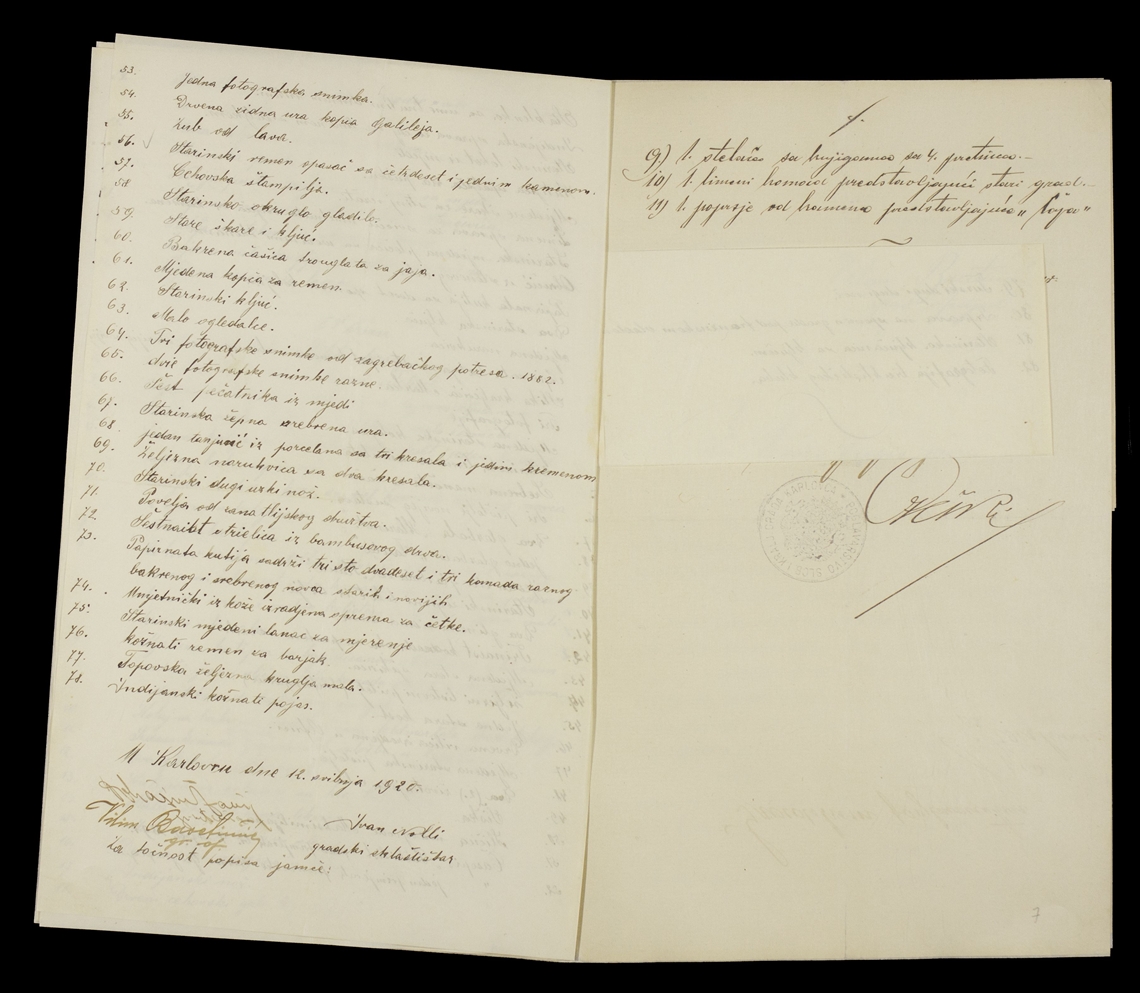 53. Jedna fotografska snimka.
54. Drvena zidna ura kopia Galileja.
55. Zub od lava.
56. Starinski remen opasač sa četrdeset i jednim kamenom.
57. Cehovska štampilja.
58. Starinsko okruglo gladilo.
59. Stare škare i ključ.
60. Bakrena čašica trouglata za jaja.
61. Mjedena kopča za remen.
62. Starinski ključ.
63. Malo ogledalce.
64. Tri fotografske snimke od zagrebačkog potresa. 1882.
65. dvie fotografske snimke razne.
66. Šest pečatnika iz mjedi
67. Starinska žepna srebrena ura.
68. jedan tanjurić iz porcelana sa tri kresala i jednim kremenom
69. Željezna narukvica sa dva kresala.
70. Starinski dugi uzki nož.
71. Povelja od zanatlijskog društva.
72. Šestnaist strielica iz bambusovog drva.
73. Papirnata kutija sadrži tri sto dvadeset i tri komada raznog
bakrenog i srebrenog novca starih i novijih
74. Umjetnički iz kože izradjena sprema za četke.
75. Starinski mjedeni lanac za mjerenje
76. kožnati remen za barjak.
77. Topovska željezna kruglja mala.
78. Indijanski kožnati pojas.
U Karlovcu dne 12. svibnja 1920.
Vilim
Ivan
gradski skladištar
Za točnost popisa jamče:
9.) 1. stelaža sa knjigama sa 4. pretinca.-
10) 1. limeni komad predstavljajući stari grad.-
11) 1. poprsje od kamena predstavljajuća "
7